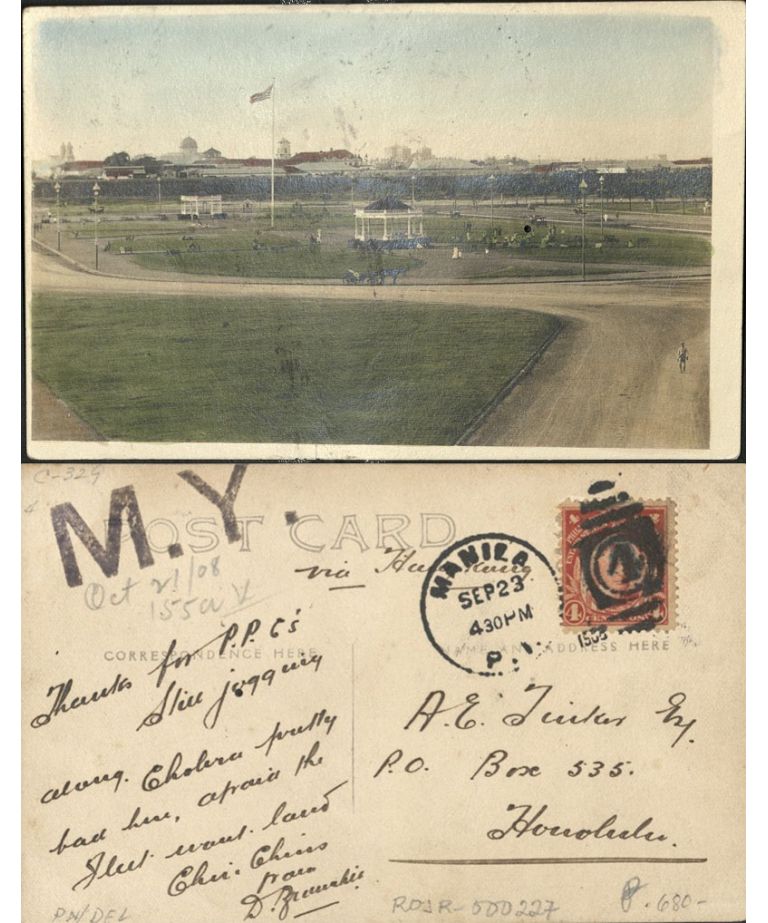 C-329
M.Y.
POST CARD
Oct 21/08
via Hongkong
MANILA
SEP 23
4 30 PM
P.I.
4 4
CORRESPONDENCE HERE
NAME AND ADDRESS HERE
Thanks for P.P.C's
Still jogging
along. Cholera pretty
bad here, afraid the
Fleet wont land
Chin Chins
from
A.E. Tinker Esq.
P.O. Box 535.
Honolulu.
PH/DEL
RDJR-000227
P. 680-